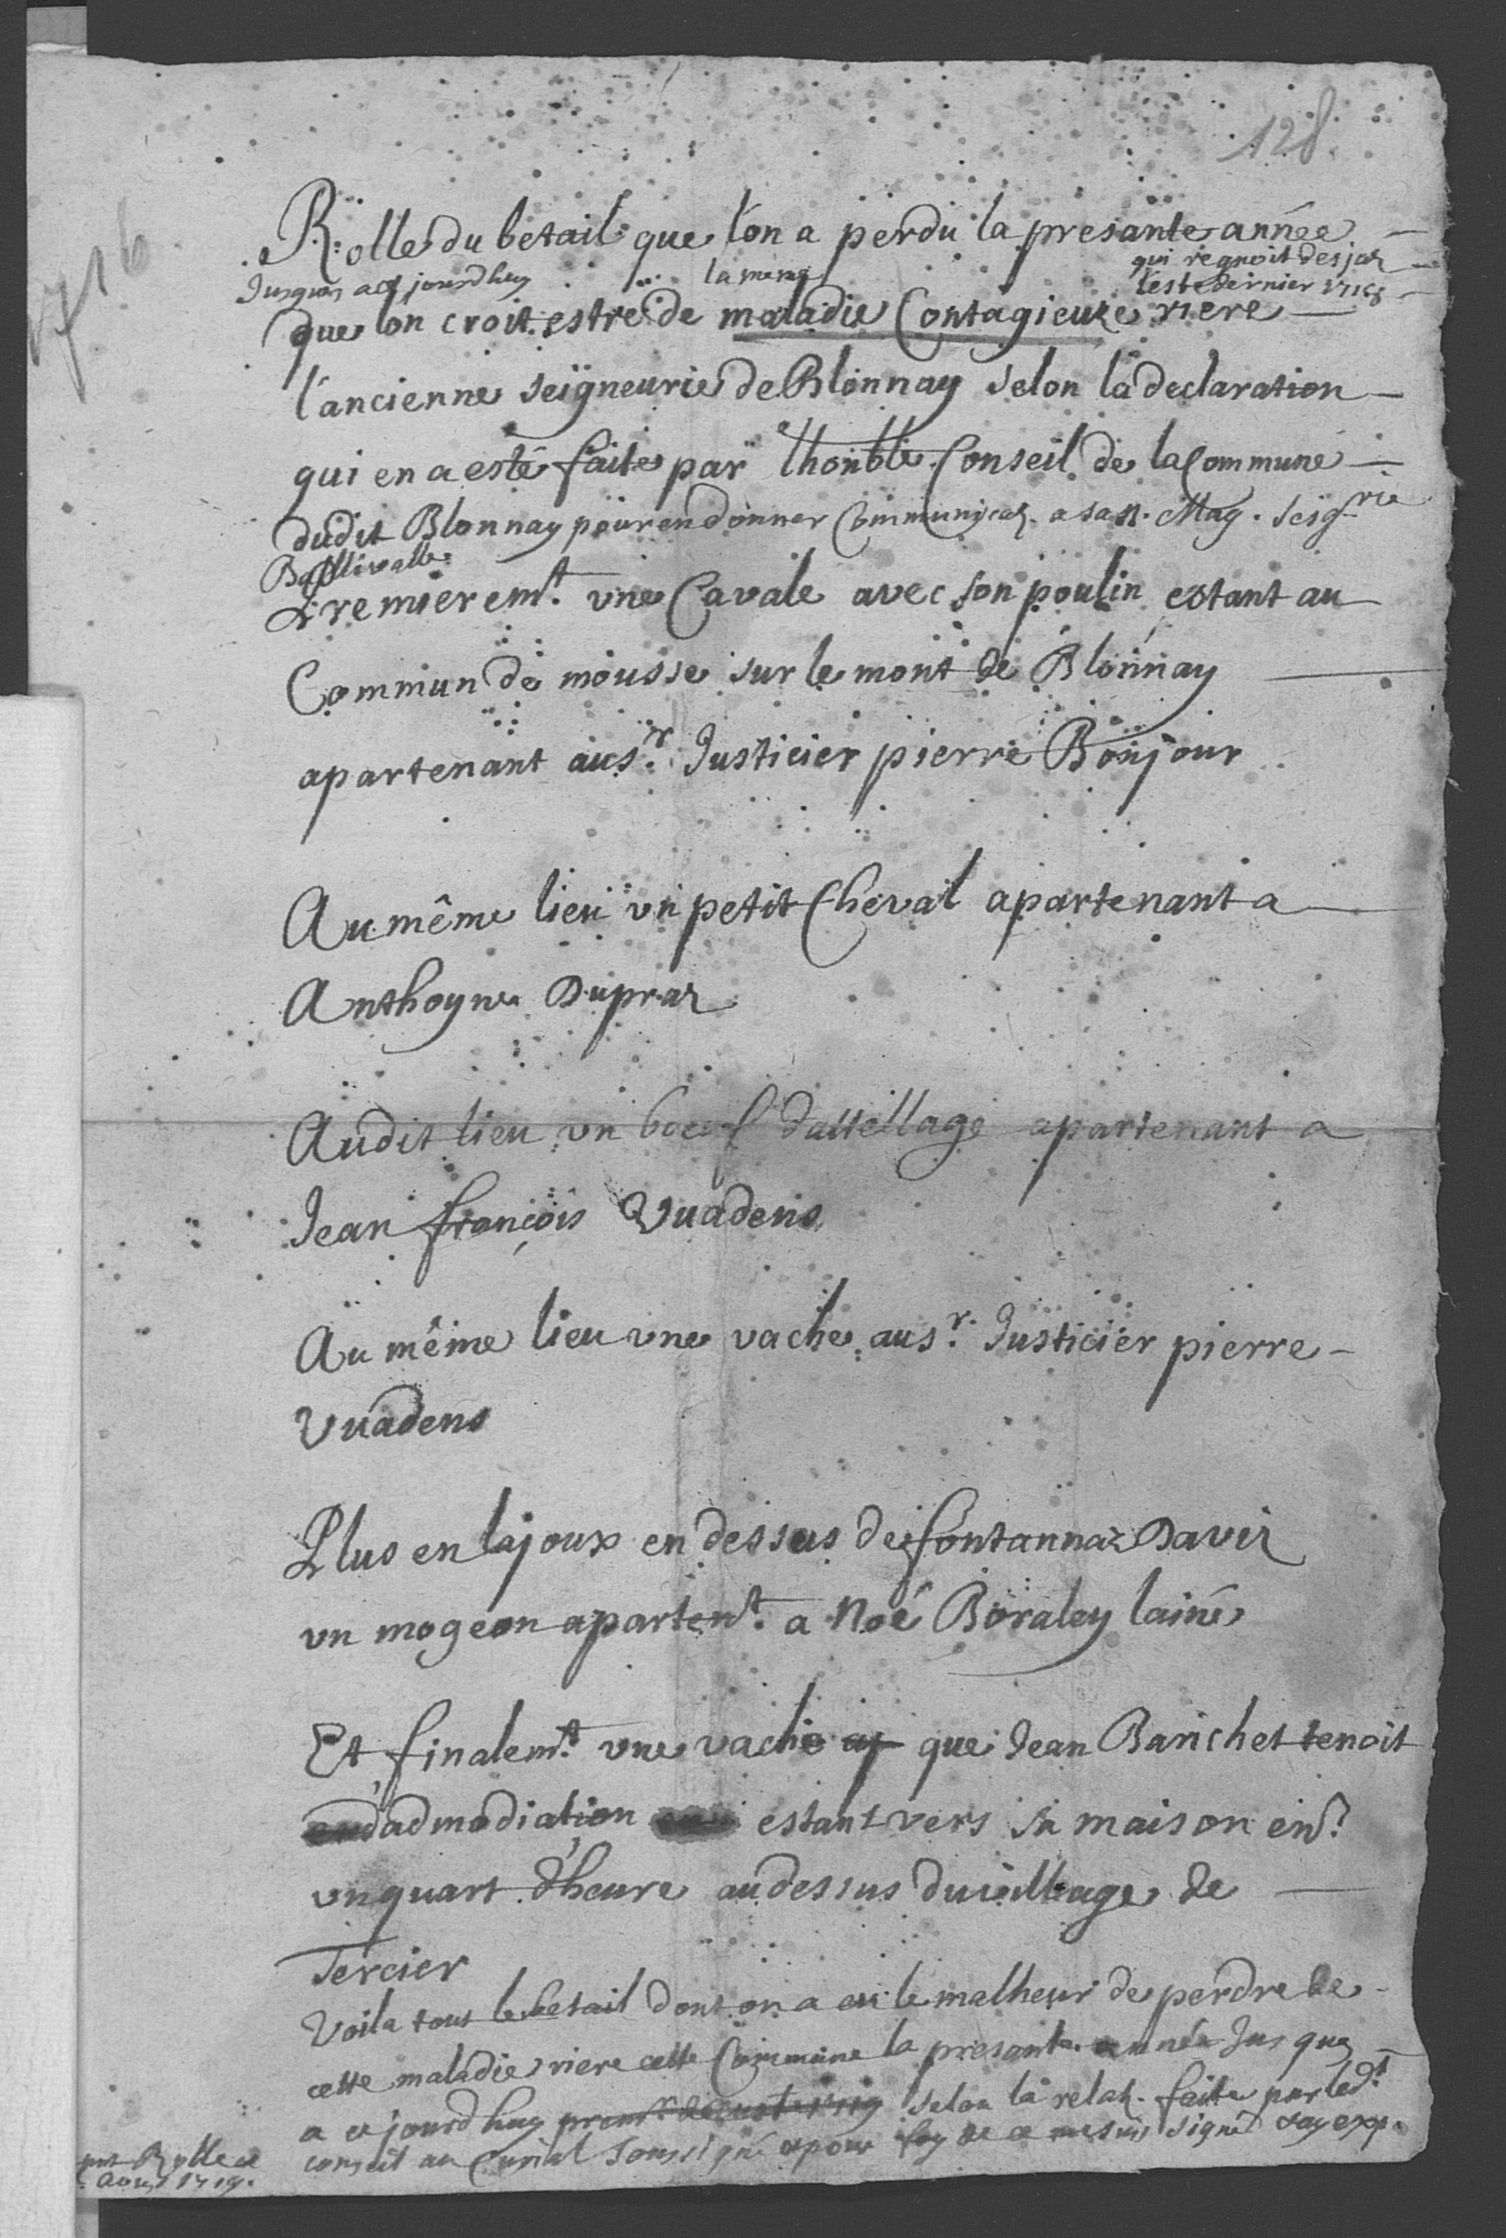 128
1716
Rolle du betail que l'on a perdu la presante année
Jusques a ce jourdhuy la meme qui regnoit desjaz
l'esté dernier 1718
que lon croit estre de maladie Contagieuze riere
l'ancienne seigneurie de Blonnay selon la declaration
qui en a esté faite par lhonble Conseil de la Commune
dudit Blonnay pour en donner Communicaz. a sa n. Mag. Seigrie
Baillivalle
Premieremt. vne Cavale avec son poulin estant au
Commun de mousse sur le mont de Blonnay
apartenant au sr. Justicier pierre Bonjour
Au même lieu vn petit Cheval apartenant a
Anthoyne Dupraz
Audit lieu vn boeuf dattellage apartenant a
Jean françois Vuadens
Au même lieu vne vache au sr. Justicier pierre
Vuadens
Plus en lajoux en dessus de fontannaz Daviz
vn mogeon apartent. a Noé Boraley lainé
Et finalemt. vne vache ap que Jean Barichet tenoit
dadmodiation estant vers sa maison
vn quart d'heure au dessus du village de
Tercier
Voila tout le betail dont on a eu le malheur de perdre de
cette maladie riere cette Commune la presante année Jusques
a ce jourdhuy premr. 1719 selon la relaz. faite par ledt
conseil au Curial soussigné & pour foy de ce me suis signé
Rolle ce
Aoust 1719.